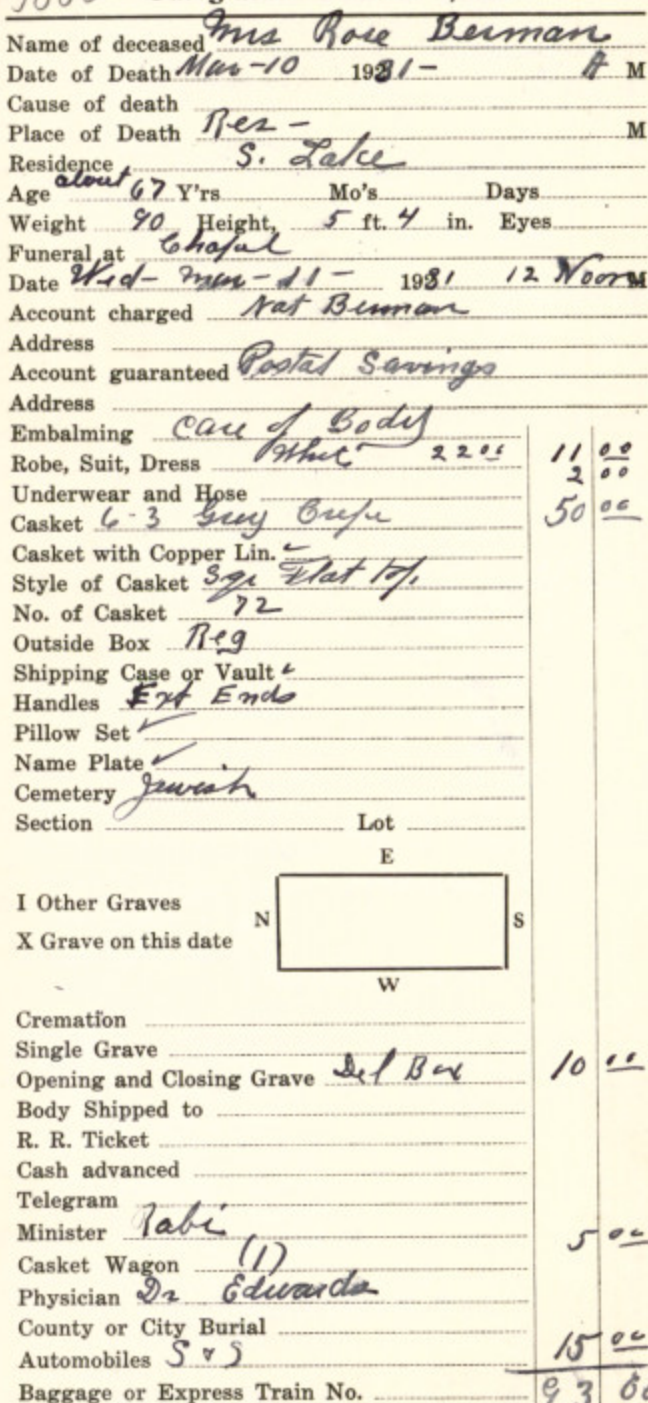 Name of deceased Mrs Rose Berman
Date of Death Mar-10 1931- A M
Cause of death
Place of Death Res - M
Residence S. Lake
Age about 67 Y'rs Mo's Days
Weight 90 Height, 5 ft. 4 in. Eyes
Funeral at Chapel
Date Wed- Mar-11- 1931 12 Noon M
Account charged Nat Berman
Address
Account guaranteed Postal Savings
Address
Embalming Care of Body
Robe, Suit, Dress White 22 00 11 00
2 00
Underwear and Hose
Casket 6-3 Grey Crepe 50 00
Casket with Copper Lin.
Style of Casket Sqr Flat Top
No. of Casket 72
Outside Box Reg
Shipping Case or Vault
Handles Ext Ends
Pillow Set
Name Plate
Cemetery Jewish
Section Lot
E
I Other Graves
N S
X Grave on this date
W
Cremation
Single Grave
Opening and Closing Grave Del Box 10 00
Body Shipped to
R. R. Ticket
Cash advanced
Telegram
Minister Rabi 5 00
Casket Wagon (1)
Physician Dr Edwards
County or City Burial
Automobiles S & S 15 00
Baggage or Express Train No. 93 00